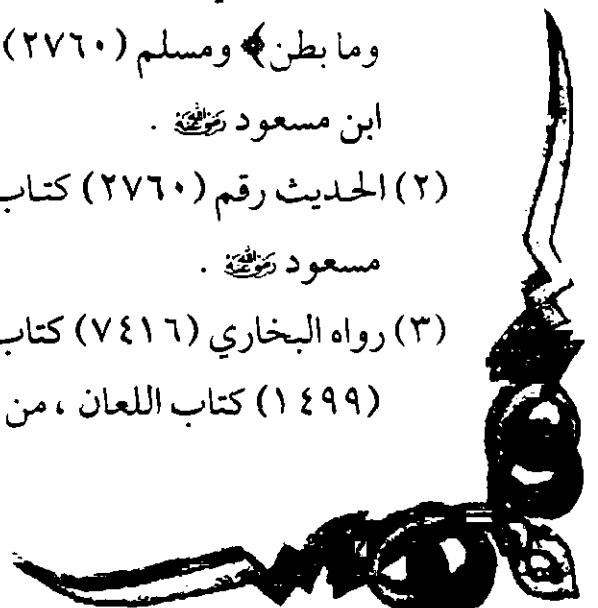 وما بطن﴾ ومسلم (٢٧٦٠)
ابن مسعود رَضِيَ اللهُ عَنْهُ .
(٢) الحديث رقم (٢٧٦٠) كتاب
مسعود رَضِيَ اللهُ عَنْهُ .
(٣) رواه البخاري (٧٤١٦) كتاب
(١٤٩٩) كتاب اللعان ، من